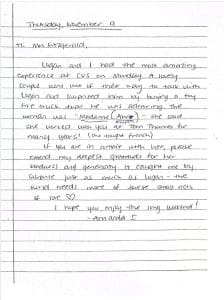 Thursday, November 9
Hi Mrs. Fitzgerald,
Logan and I had the most amazing
experience at CVS on Monday. A lovely
couple was out of their way to talk with
Logan and surprised him by buying a toy
fire truck that he was admiring. The
woman was "Madame - she said
she worked with you at Tom Thumb for
many years! (She taught French)
If you are in contact with her, please
extend my deepest gratitude for her
kindness and generosity. It caught me by
surprise just as much as Logan - the
world needs more of these small acts
of love ♡
I hope you enjoy the long weekend!
- Amanda S